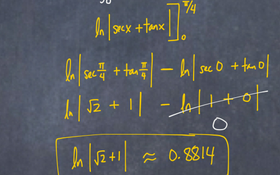 ln|secx + tanx|]₀^π/4
ln|sec π/4 + tan π/4| − ln|sec 0 + tan 0|
ln|√2 + 1| − ln|1 + 0|
0
ln|√2+1| ≈ 0.8814